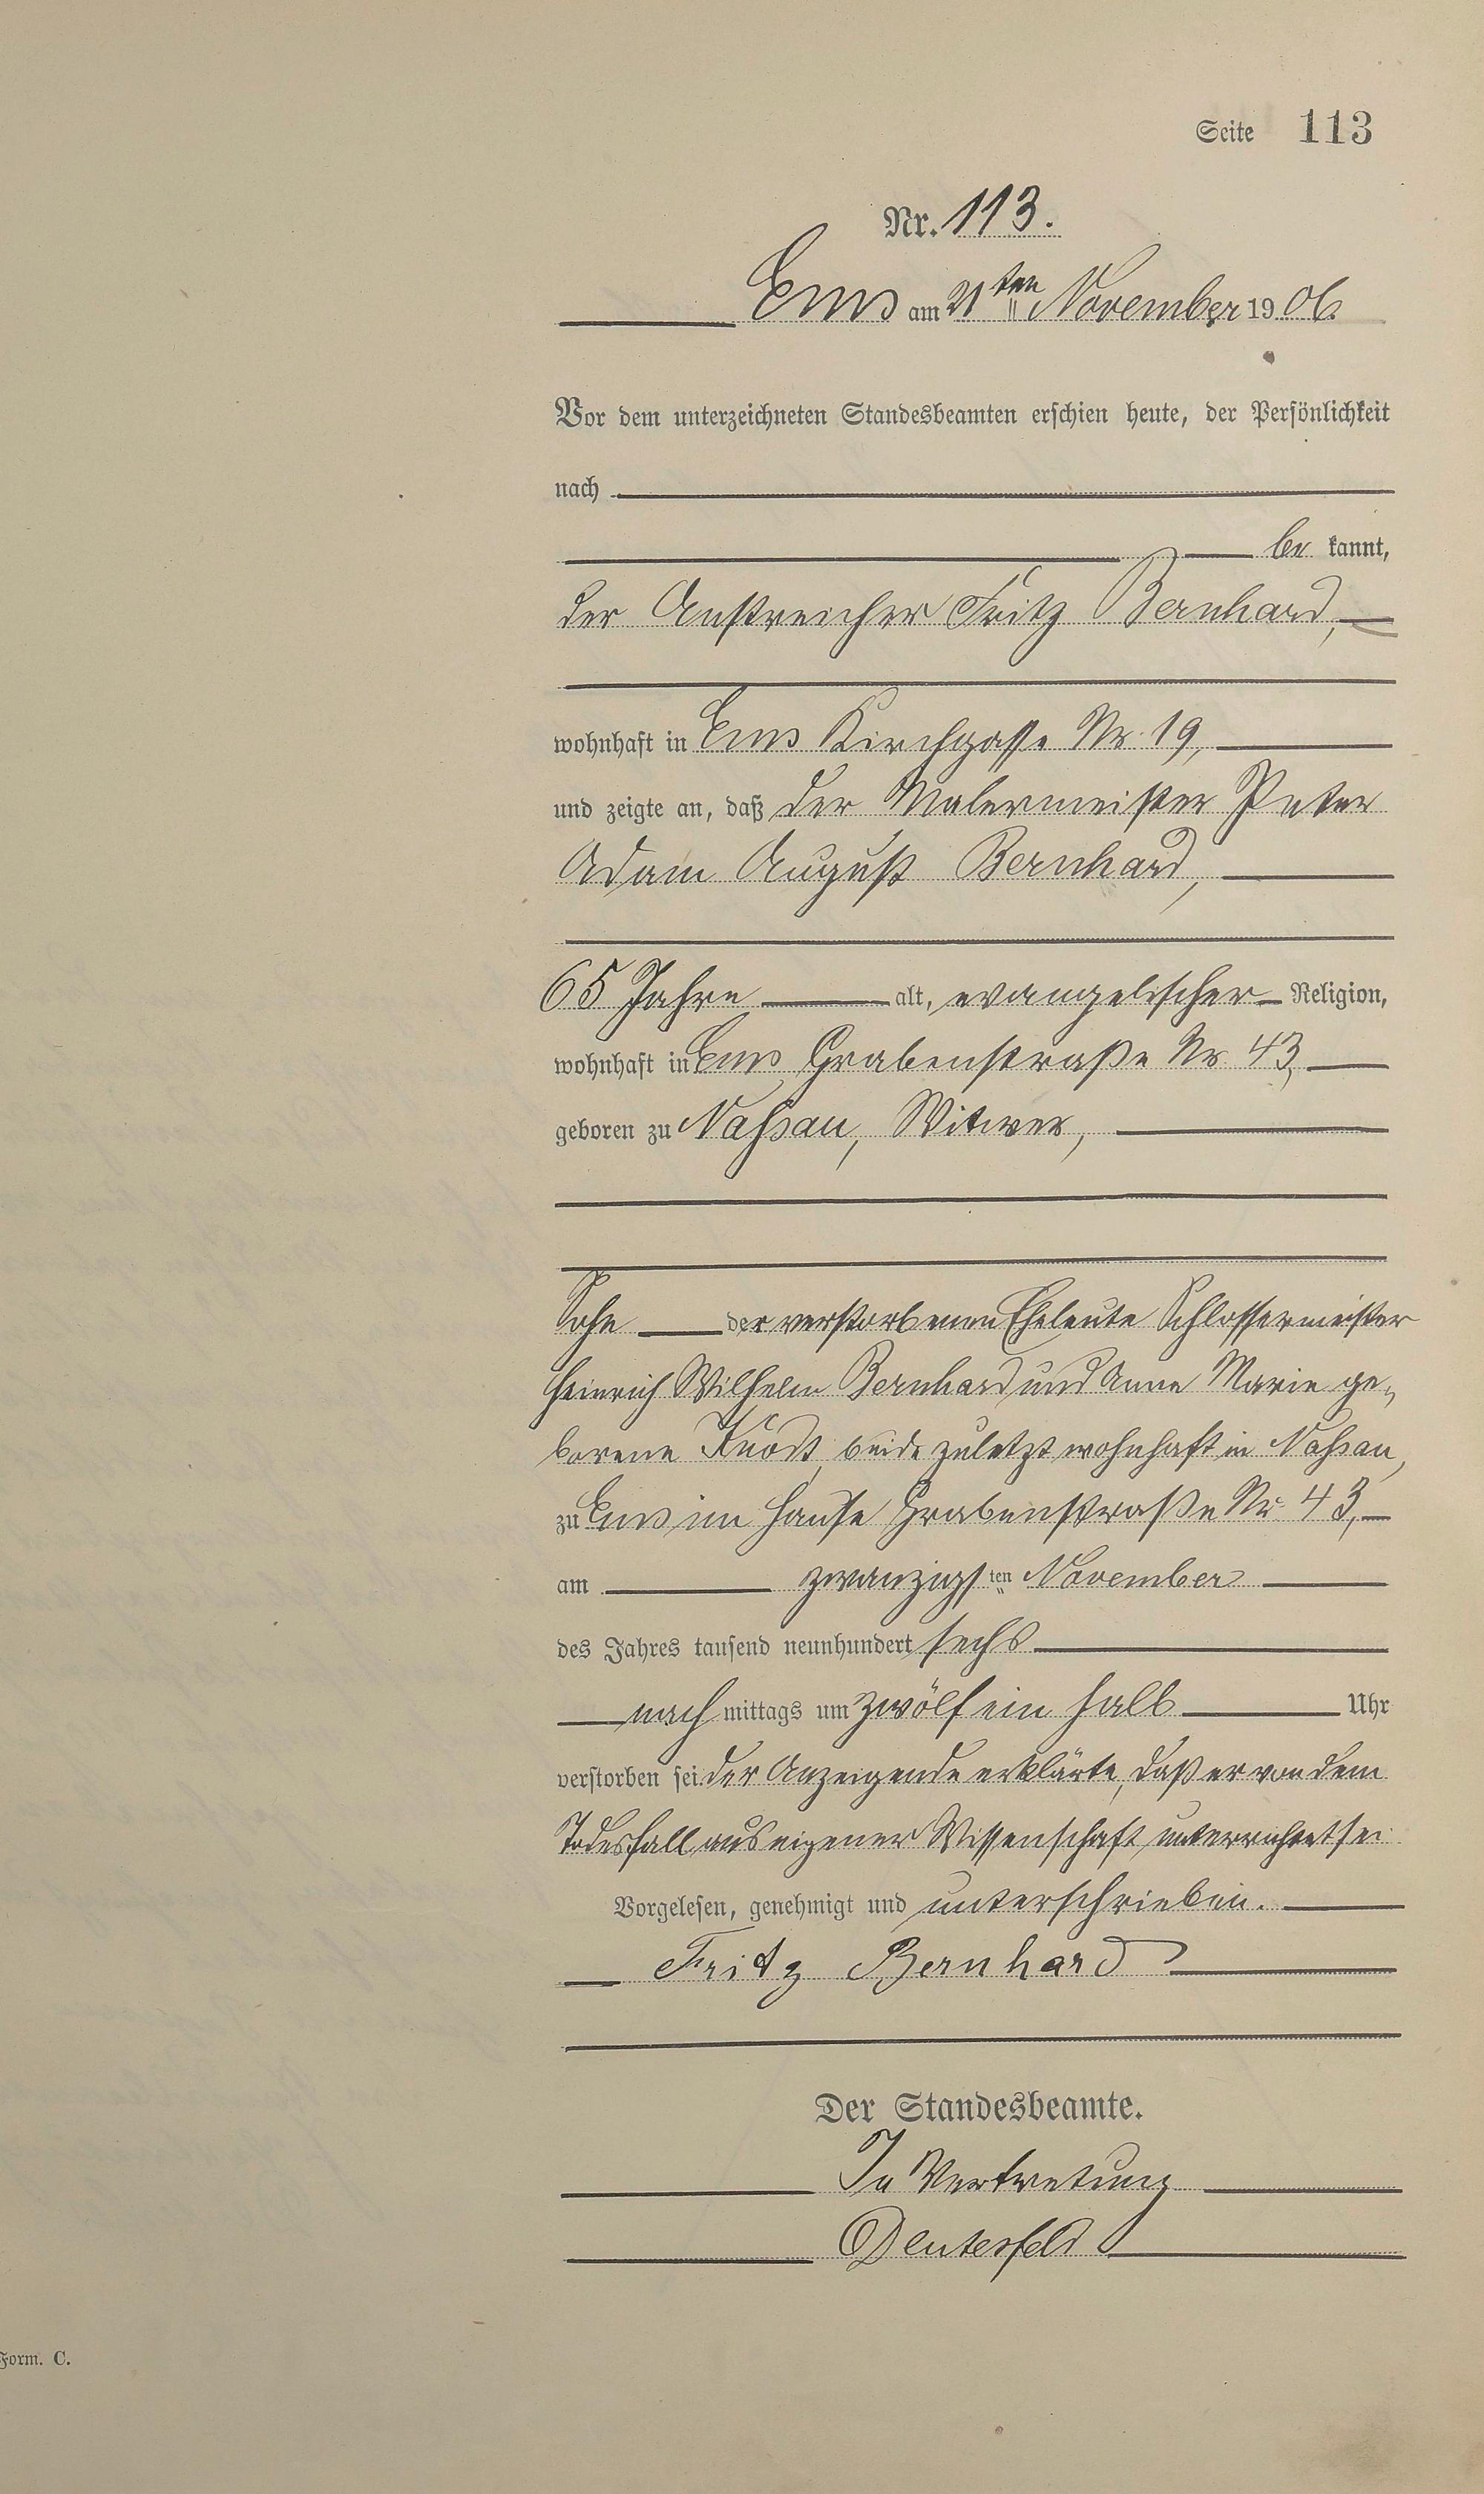 Seite 113
Nr. 113.
Ems am 21ten November 1906.
Vor dem unterzeichneten Standesbeamten erschien heute, der Persönlichkeit
nach
be kannt,
der Anstreicher Fritz Bernhard,
wohnhaft in Ems Kirchgasse Nr. 19,
und zeigte an, daß der Malermeister Peter
Adam August Bernhard,
65 Jahre alt, evangelischer Religion,
wohnhaft in Ems Grabenstraße Nr. 43,
geboren zu Nassau, Witwer,
Sohn der verstorbenen Eheleute Schlossermeister
Heinrich Wilhelm Bernhard und Anna Marie ge-
borene Knodt, beide zuletzt wohnhaft in Nassau,
zu Ems im Hause Grabenstraße Nr. 43,
am zwanzigsten November
des Jahres tausend neunhundert sechs
nach mittags um zwölf ein halb Uhr
verstorben sei. Der Anzeigende erklärte, daß er von dem
Todesfall aus eigener Wissenschaft unterrichtet sei.
Vorgelesen, genehmigt und unterschrieben.
Fritz Bernhard
Der Standesbeamte.
In Vertretung
Deutesfeld
Form. C.